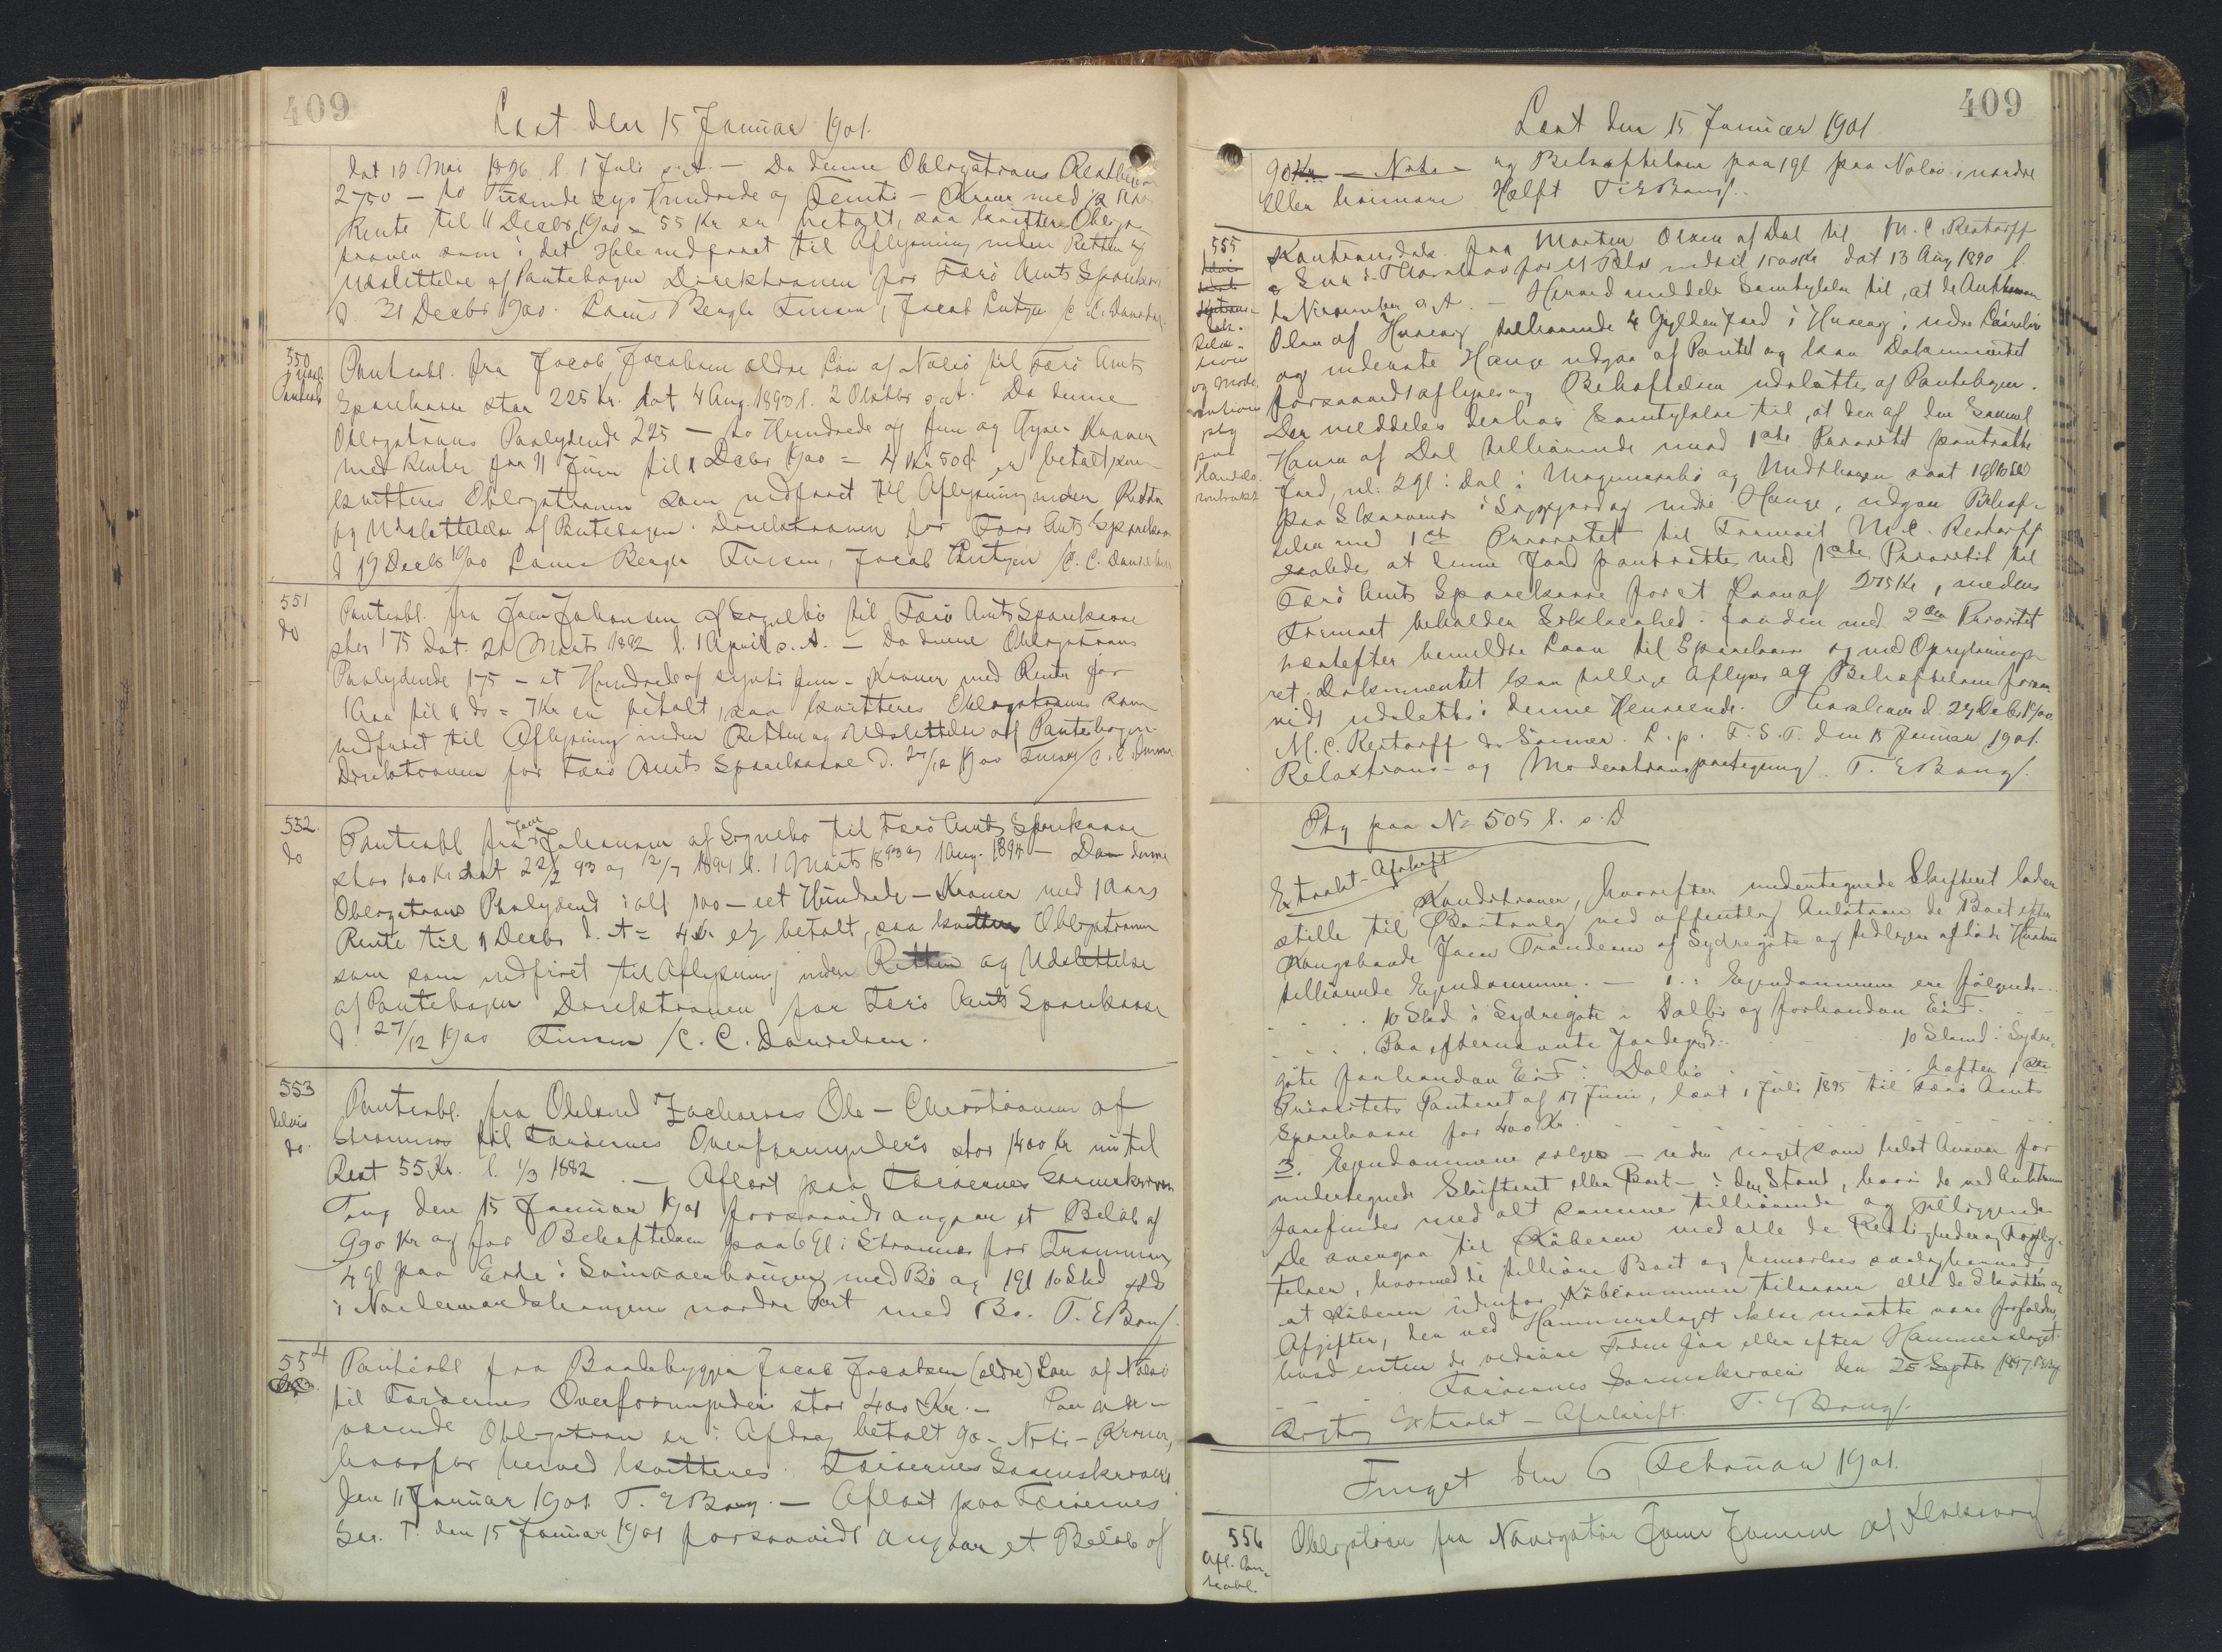 409
Læst den 15 Januar 1901.
dat 10 Mai 1896 l. 1 Juli s. A. — Da denne Obligations Restbeløb
2750 — to Tusinde syv Hundrede og Femti — Kroner med ½ Aars
Rente til 11 Decbr. 1900 = 55 Kr er betalt, saa kvitteres Obliga-
tionen som i det Hele indfriet til Aflysning inden Retten og
Udslettelse af Pantebogen Direktionen for Færö Amts Sparekasse
d. 31 Decbr 1900. Louis Bergh Finsen, Jacob Lützen /C. C. Danielsen
550
Panteobl. fra Jacob Jacobsen ældre Lön af Nolsö til Færö Amts
Sparekasse stor 225 Kr. dat 4 Aug. 1890 l. 2 Oktbr s. A. Da denne
Obligations Paalydende 225 — to Hundrede og fem og Tyve Kroner
med Renter fra 11 Juni til 11 Decbr 1900 = 4 Kr 50 Ø er betalt saa
kvitteres Obligationen som indfriet til Aflysning inden Retten
og Udslettelse af Pantebogen. Direktionen for Færö Amts Sparekasse
d 19 Decbr 1900 Louis Bergh Finsen, Jacob Lützen /C. C. Danielsen
551
do
Pantobl. fra Joen Johansen af Signebö til Færö Amts Sparekasse
stor 175 dat. 21 Marts 1892 l. 1 April s. A. — Da denne Obligations
Paalydende 175 — et Hundrede og sytti fem — Kroner med Rente for
1 Aar til 11 ds = 7 Kr er betalt, saa kvitteres Obligationen som
indfriet til Aflysning inden Retten og Udslettelse af Pantebogen
Direktionen for Færö Amts Sparekasse d. 27/12 1900 Finsen /C. C. Danielsen
552.
do
Pantobl fra Joen Johansen af Signebö til Færö Amts Sparekasse
stor 100 Kr dat 22/2 93 og 12/7 1894 l. 1 Marts 1893 og 1 Aug. 1894 — Da denne
Obligations Paalydende i alt 100 — et Hundrede — Kroner med 1 Aars
Rente til 11 Decbr d. A = 4 Kr er betalt, saa kvitteres Obligationen
som indfriet til Aflysning inden Retten og Udslettelse
af Pantebogen Direktionen for Færö Amts Sparekasse
d. 27/12 1900 Finsen /C. C. Danielsen.
553
delvis
do.
Pantobl. fra Zacharias Ole — Christiansen af
Strömnæs til Færöernes Overformynderi stor 1400 Kr nu til
Rest 55 Kr. l. 1/3 1882. — Aflæst paa Færöernes Sorenskriveri
Ting den 15 Januar 1901 forsaavidt angaar et Belöb af
990 Kr og for Behæftelsen paa 6 Gl i Strömnæs for Trommen
4 gl paa Eide i med Bö og 1 gl 10 Skd
i nordre Part med Bö. T. E Bang/.
554
Pantobl fra Baadebygger Jacob Jacobsen (ældre) Lön af Nolsö
til Færöernes Overformynderi stor 400 Kr. — Paa nær-
værende Obligation er i Afdrag betalt 90 — Niti — Kroner,
hvorfor herved kvitteres. Færöernes Sorenskriveri
den 11 Januar 1901. T. E Bang. — Aflæst paa Færöernes
Sor. T. den 15 Januar 1901 forsaavidt angaar et Belöb af
409
Læst den 15 Januar 1901
90 Kr — Niti — og Behæftelsen paa 1 gl paa Nolsö, nordre
eller Hælft T. E Bang/.
555
Relaxa-
tion
og Mode
rations
ptg
paa
Handels-
kontrakt
Kontrasdok. fra Morten Olsen af Dal til M. C. Restorff
& Sön i Thorshavn for indtil 1500 Kr dat 13 Aug 1890 l.
1 November s. A. — Herved meddeles Samtykke til, at de
Olsen af Husevig tilhörende 4 Gylden Jord i Husevig, indre
og inderste Hauge udgaa af Pantet og kan Dokumentet
forsaavidt aflyses og Behæftelsen udslettes af Pantebogen.
Der meddeles derhos Samtykke til, at den af den Samuel
Hansen af Dal tilhörende med 1ste Prioritet pantsatte
Jord, nl. 2 gl i Dal i og Midthaugen samt 1 gl 10 Skd
paa Skarvenes i og nedre Hauge, udgaa Behæf-
telsen med 1ste Prioritet til Firmaet M. C. Restorff
saaledes at denne Jord pantsættes med 1ste Prioritet til
Færö Amts Sparekasse for et Laan af 275 Kr, medens
Firmaet beholder Sikkerhed i Jorden med 2den Prioritet
næstefter bemeldte Laan til Sparekassen og med Oprykningsr-
ret. Dokumentet kan tillige aflyses og Behæftelsen forsaa-
vidt udslettes i denne Henseende. Thorshavn d. 29 Decbr 1900
M. C. Restorff & Sönner. L. p. F. S. T. den 15 Januar 1901.
Relaxtions- og Moderationspaategning/. T. E Bang/.
Ptg paa No 505 l. s. D
Extrakt-Afskrift
Konditioner, hvorefter undertegnede Skifteret lader
stille til Bortsalg ved offentlig Auktion de Boet efter
Kongsbonde Joen Trondesen af Sydregöte og tidligere afdöde Hustru
tilhörende Ejendomme. — 1. : Ejendommene ere fölgende...
. . . . 10 Skd i Sydregöte i Dalbö og forhandan Eid.
. . . . Paa efternævnte Jordegods 10 Skind i Sydre-
göte forhandan Eid i Dalbö . . hæfter 1ste
Prioritets Panteret af 17 Juni, læst 1 Juli 1895 til Færö Amts
Sparekasse for 400 Kr. . .
3. Ejendommene sælges — uden noget som helst Ansvar for
undertegnede Skifteret eller Boet — i den Stand, hvori de ved Auktionen
forefindes med alt samme tilhörende og tilliggende
De overgaa til Köberen med alle de Rettigheder og Forplig-
telser, hvormed de tilhöre Boet og bemærkes særlig herved,
at Köberen udenfor Köbesummen tilsvarer alle de Skatter og
Afgifter, der ved Hammerslaget ikke maatte være forfaldne,
hvad enten de vedröre Tiden för eller efter Hammerslaget.
Færöernes Sorenskriveri den 25 Septbr 1897 T. E Bang
Rigtig Extrakt-Afskrift. T. E Bang/.
Tinget den 6 Februar 1901.
556
Afl. Pan-
teobl.
Obligation fra Navigatör Joen Joensen af Klaksvig